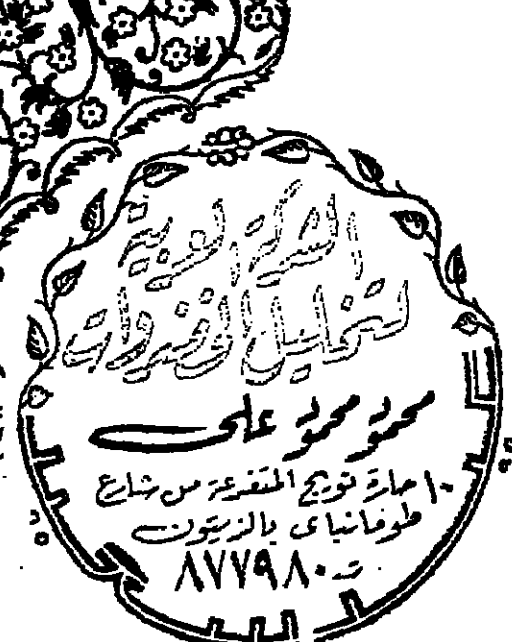 الشركة الفنية
لتحليل الأفندات
محمود محمود على
١٠ حارة نوريج المتفرعة من شارع
طومانباى بالزيتون
ت. ٨٧٧٩٨٠